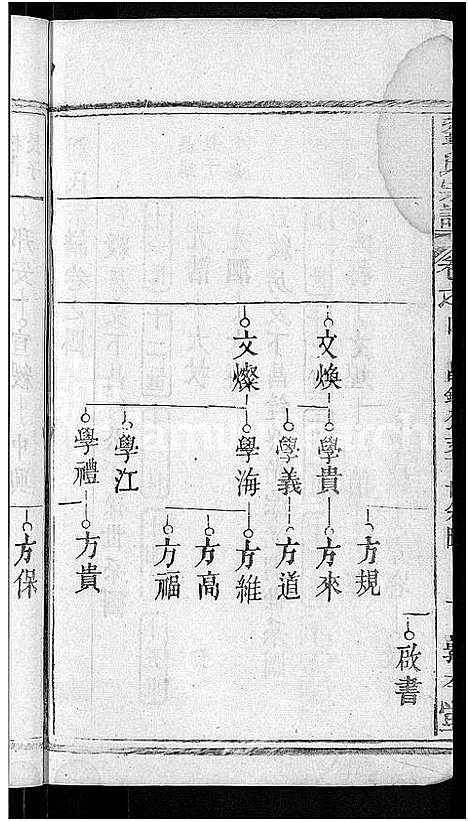 文煥
文燦
學貴
學義
學海
學江
學禮
方規
方來
方道
方維
方高
方福
方貴
啟書
方保